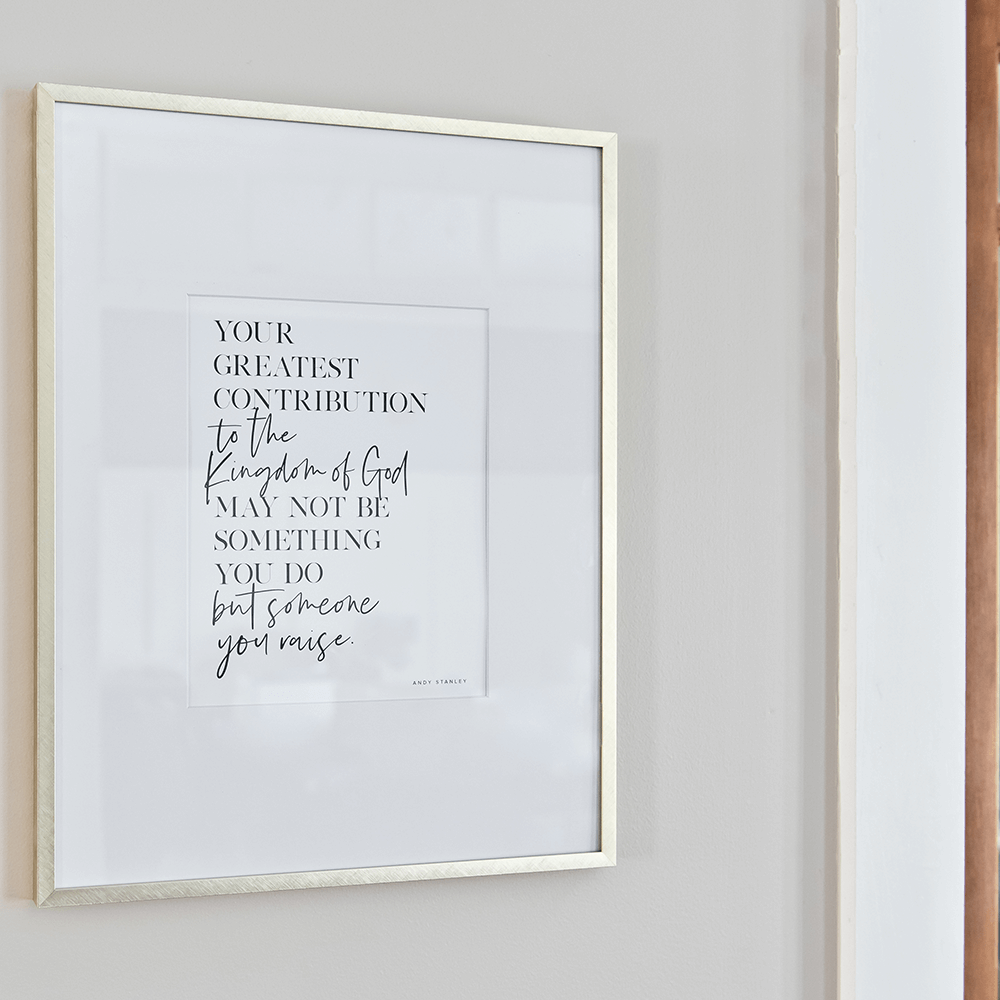 YOUR
GREATEST
CONTRIBUTION
to the
Kingdom of God
MAY NOT BE
SOMETHING
YOU DO
but someone
you raise.
ANDY STANLEY